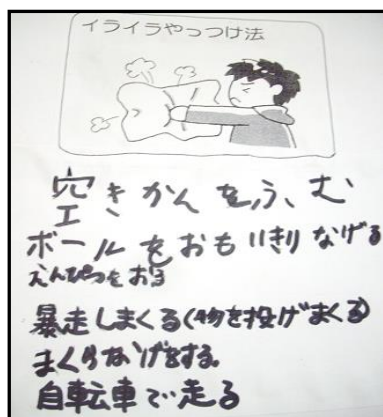 イライラやっつけ法
空きかんをふむ
ボールをおもいきりなげる
えんぴつをおる
暴走しまくる(物を投げまくる)
まくらなげをする。
自転車で走る